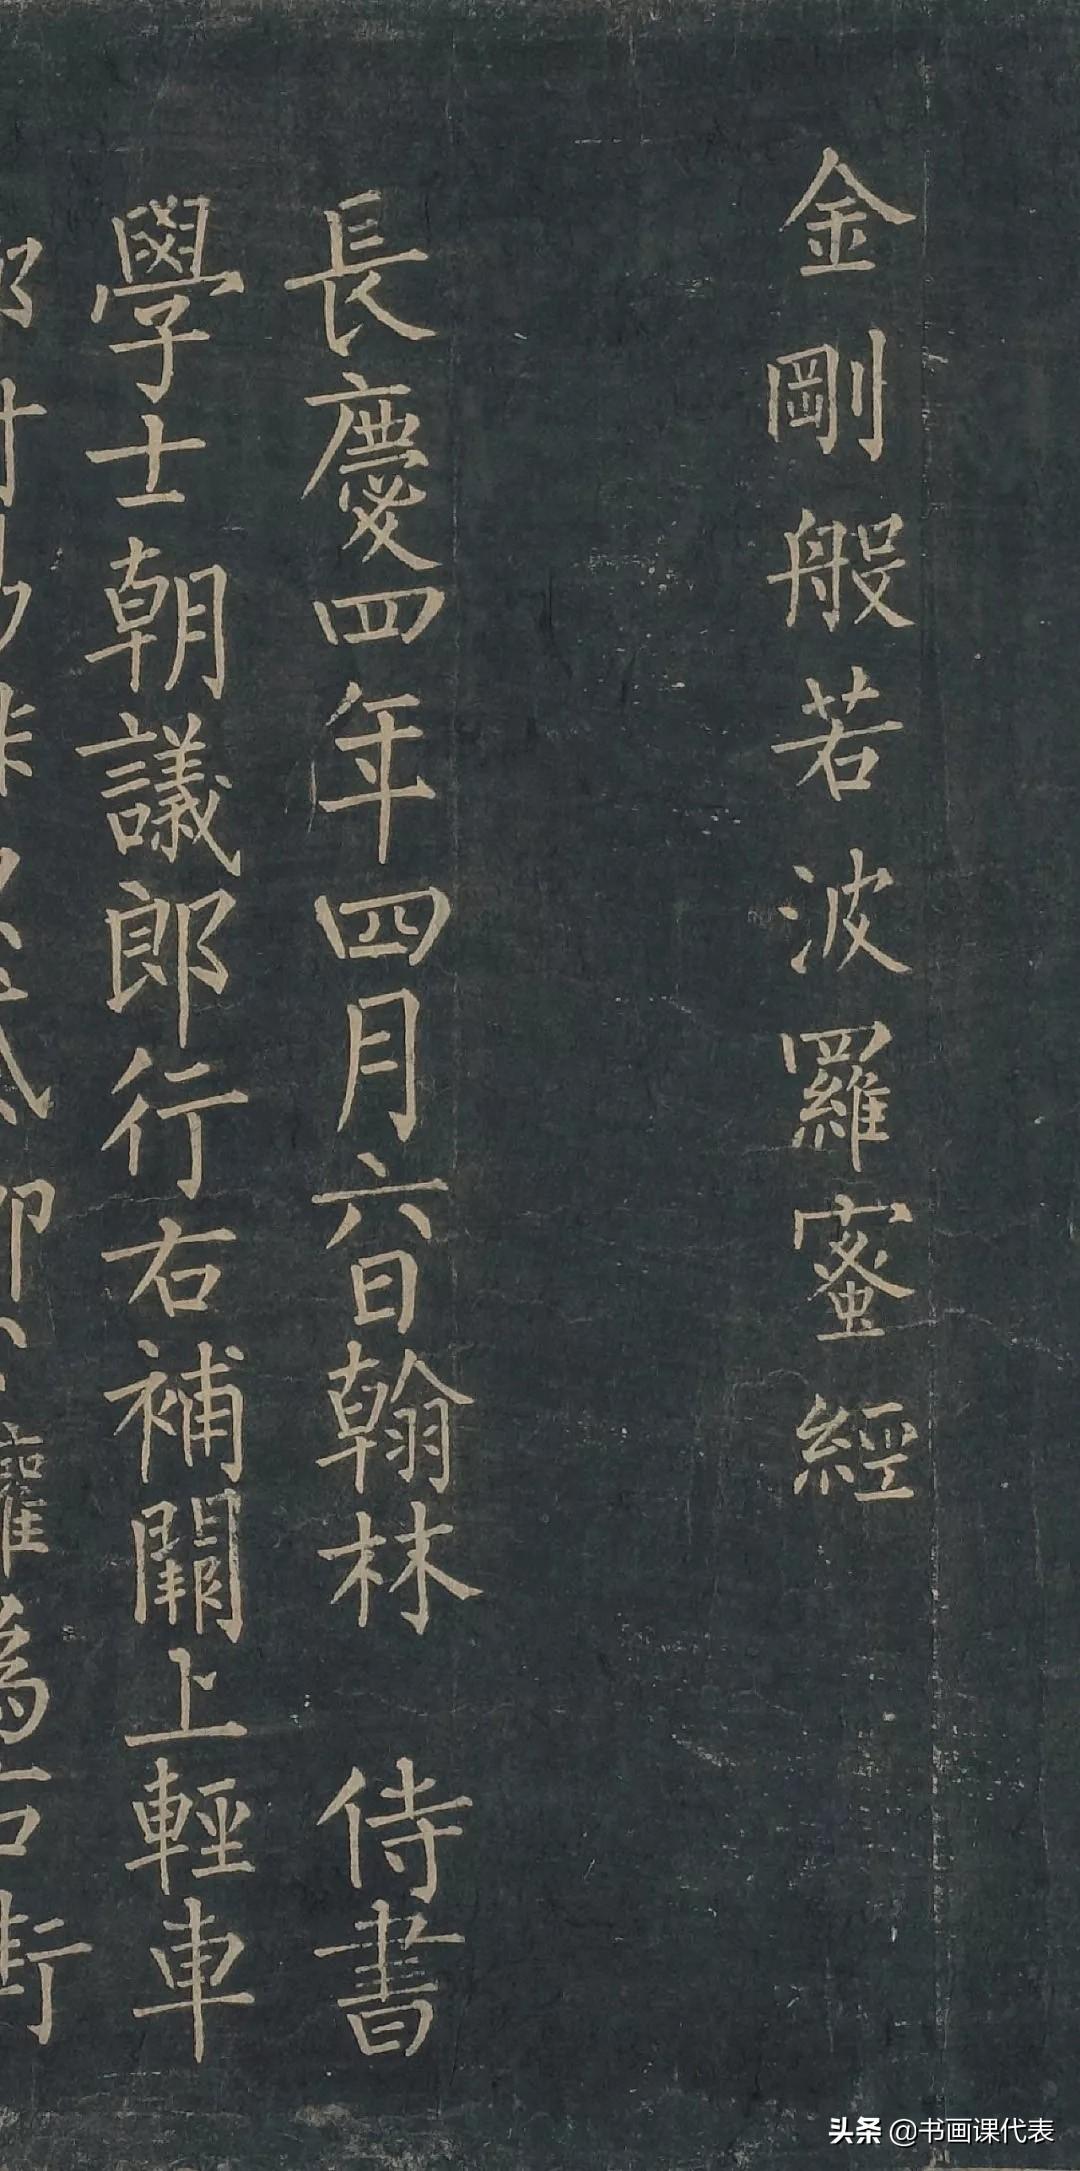 金剛般若波羅蜜經
長慶四年四月六日翰林 侍書
學士朝議郎行右補闕上輕車
頭条 @书画课代表